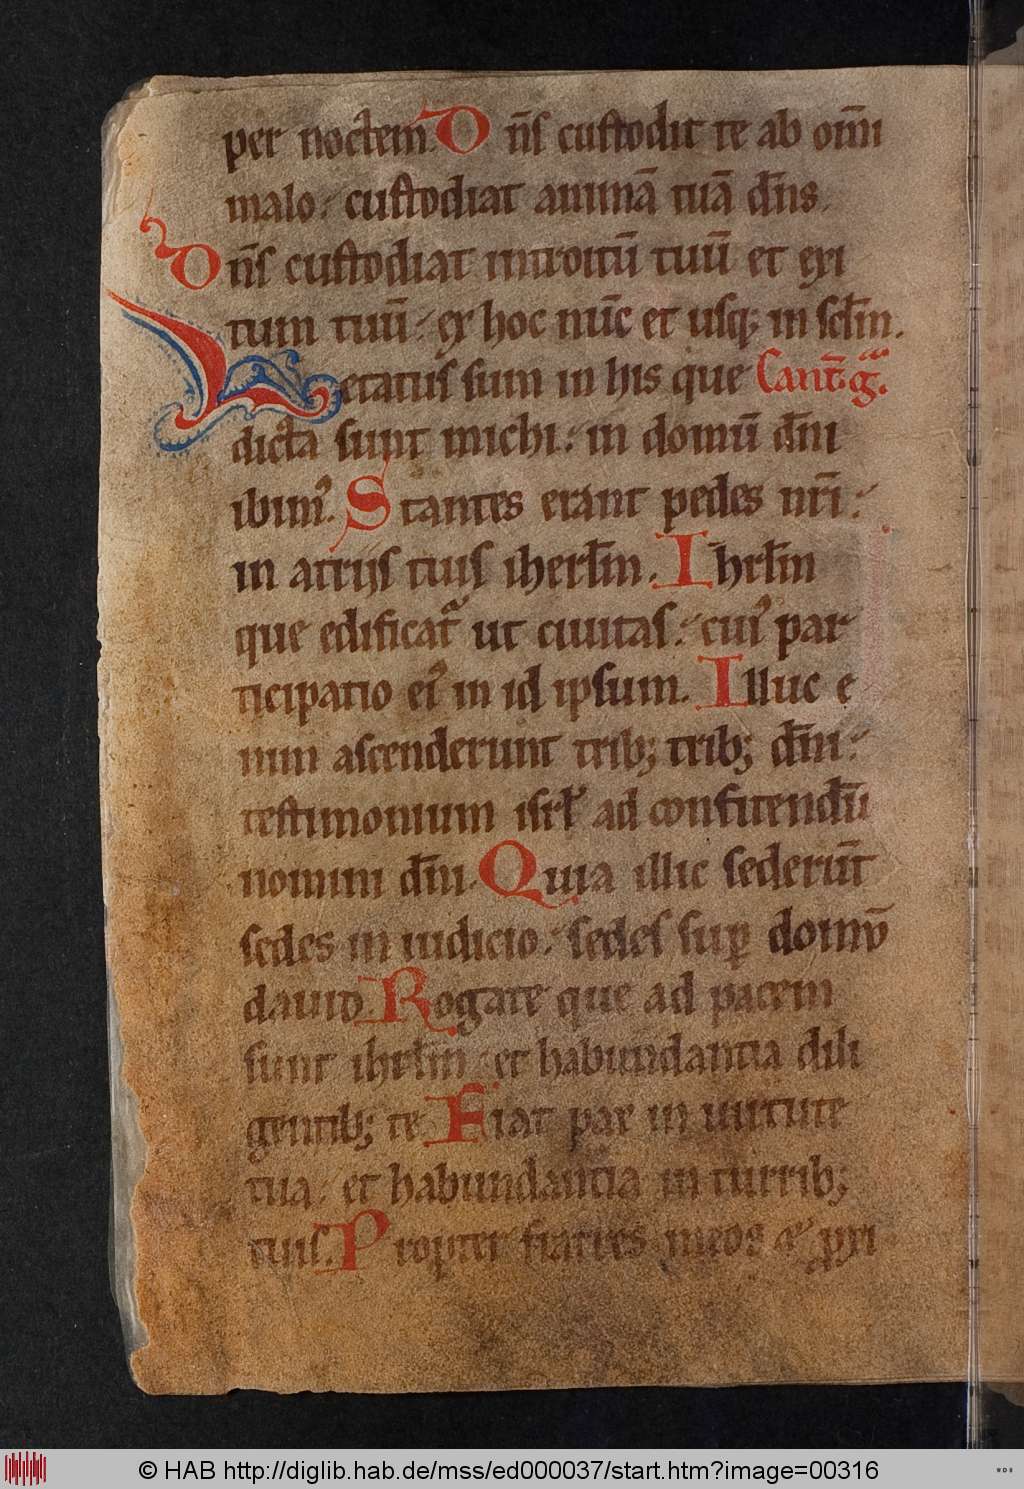 per noctem. Dn̄s custodit te ab om̄i
malo: custodiat animā tuā dn̄s.
Dn̄s custodiat introitū tuū et exi
tum tuū: ex hoc nūc et usq; in scl̄m.
Letatus sum in his que Cant̄. gͣ.
dicta sunt michi: in domū dn̄i
ibimꝰ. Stantes erant pedes nr̄i:
in atrijs tuis iherl̄m. Ihrl̄m
que edificatᷓ ut ciuitas: cuiꝰ par
ticipatio eiꝰ in id ipsum. Illuc e
nim ascenderunt trib; trib; dn̄i:
testimonium isrl̄ ad confitendū
nomini dn̄i. Quia illic sederūt
sedes in iudicio: sedes suꝑ domū
dauid. Rogate que ad pacem
sunt ihrl̄m: et habundantia dili
gentib; te. Fiat pax in uirtute
tua: et habundantia in turrib;
tuis. Propter fratres meos ⁊ ꝓxi
© HAB http://diglib.hab.de/mss/ed000037/start.htm?image=00316